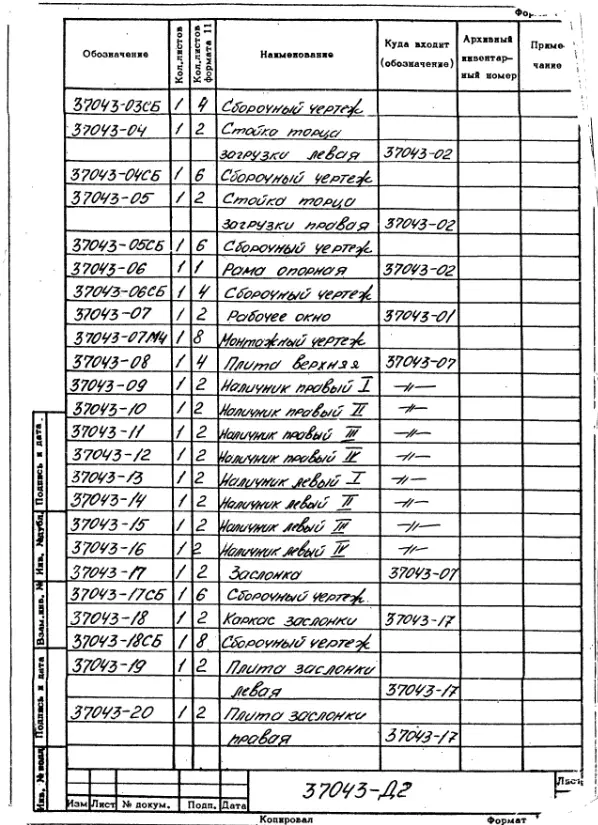 Обозначение Кол.листов Кол.листов формата 11 Наименование Куда входит (обозначение) Архивный инвентарный номер Примечание
37043-03СБ 1 4 Сборочный чертеж
37043-04 1 2 Стойка торца
загрузки левая 37043-02
37043-04СБ 1 6 Сборочный чертеж
37043-05 1 2 Стойка торца
загрузки правая 37043-02
37043-05СБ 1 6 Сборочный чертеж
37043-06 1 1 Рама опорная 37043-02
37043-06СБ 1 4 Сборочный чертеж
37043-07 1 2 Рабочее окно 37043-01
37043-07МЧ 1 8 Монтажный чертеж
37043-08 1 4 Плита верхняя 37043-07
37043-09 1 2 Наличник правый I -//-
37043-10 1 2 Наличник правый II -//-
37043-11 1 2 Наличник правый III -//-
37043-12 1 2 Наличник правый IV -//-
37043-13 1 2 Наличник левый I -//-
37043-14 1 2 Наличник левый II -//-
37043-15 1 2 Наличник левый III -//-
37043-16 1 2 Наличник левый IV -//-
37043-17 1 2 Заслонка 37043-07
37043-17СБ 1 6 Сборочный чертеж
37043-18 1 2 Каркас заслонки 37043-17
37043-18СБ 1 8 Сборочный чертеж
37043-19 1 2 Плита заслонки
левая 37043-17
37043-20 1 2 Плита заслонки
правая 37043-17
Подпись и дата
Инв. №дубл.
Взам.инв. №
Подпись и дата
Инв. №подл
37043-Д2
Лист
Изм Лист № докум. Подп. Дата
Копировал Формат